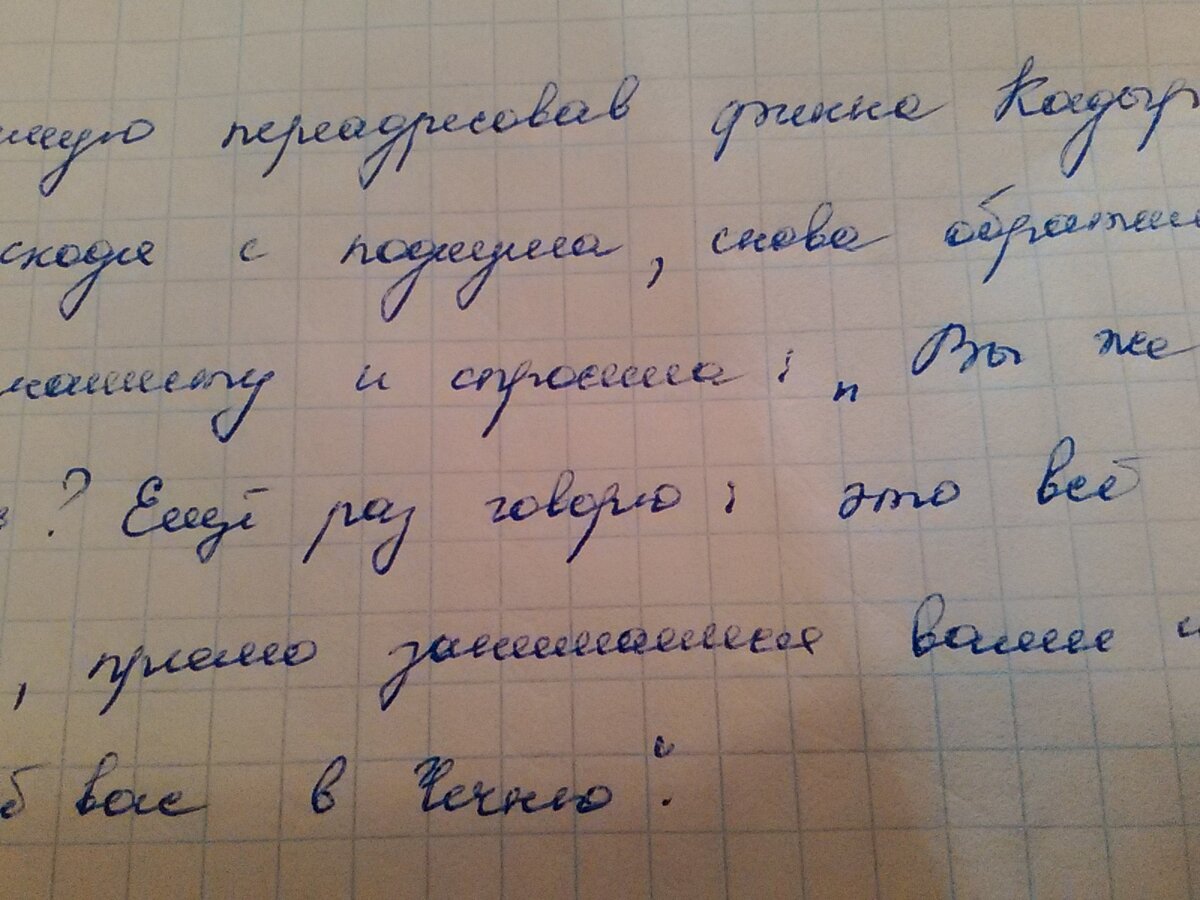 переадресовав финна Кадыр
сходя с подиума, снова обратил
и спросила: „Вы же
? Ещё раз говорю: это всё
, прямо заниматься вами и
б вас в Чечню“.